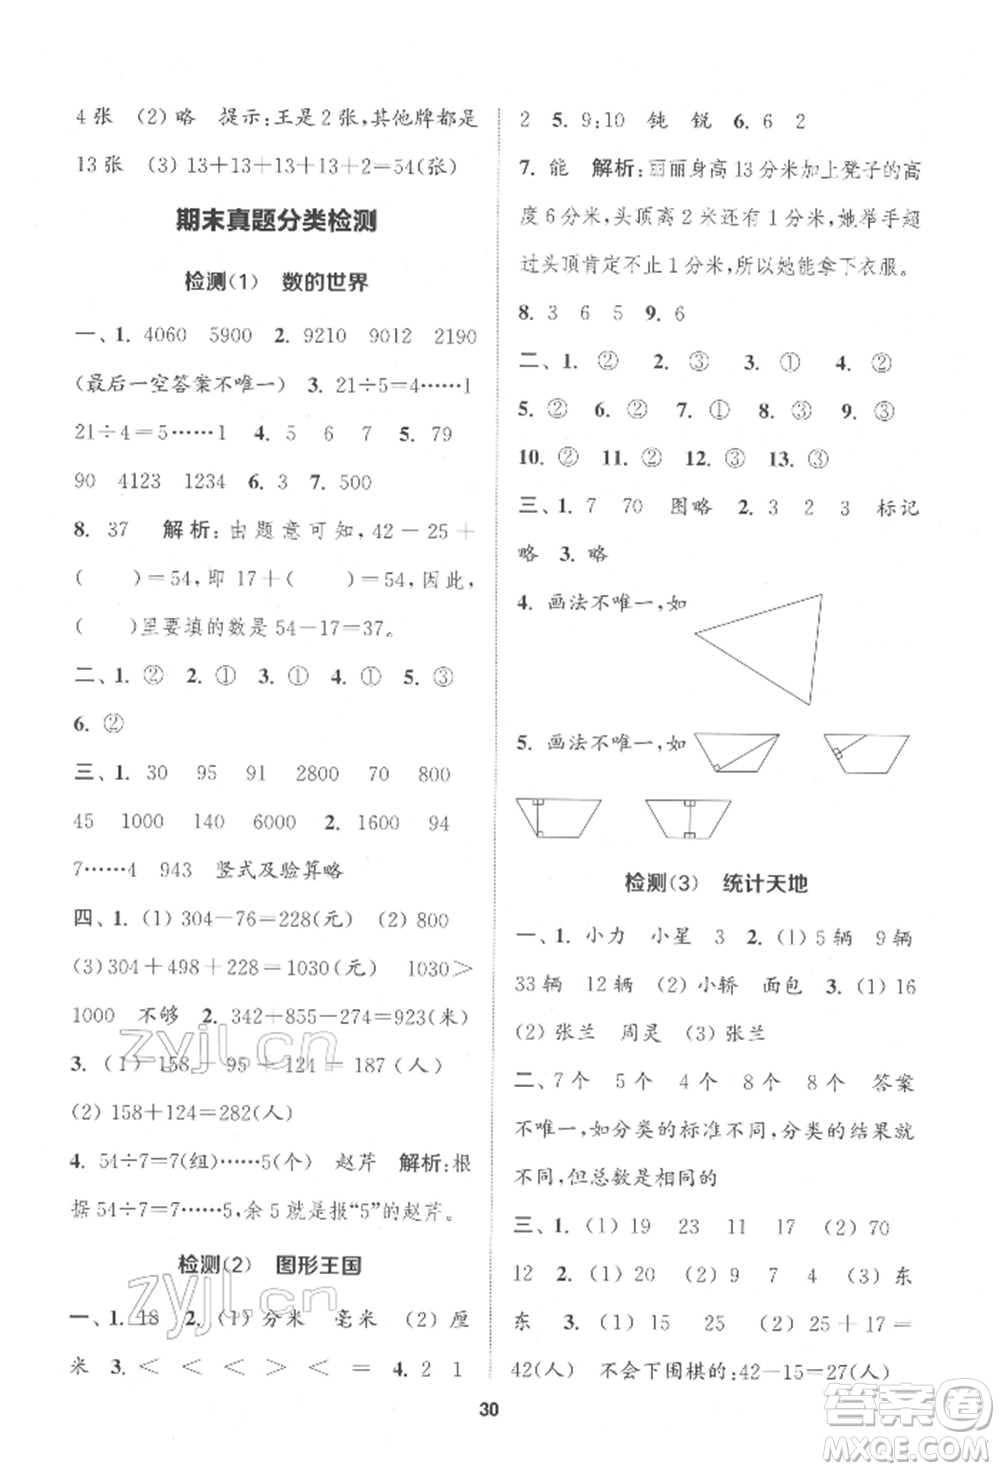 4张 (2)略 提示:王是2张,其他牌都是
13张 (3)13+13+13+13+2=54(张)
期末真题分类检测
检测(1) 数的世界
一、1. 4060 5900 2. 9210 9012 2190
(最后一空答案不唯一) 3. 21÷5=4……1
21÷4=5……1 4. 5 6 7 5. 79
90 4123 1234 6. 3 7. 500
8. 37 解析:由题意可知,42-25+
( )=54,即17+( )=54,因此,
( )里要填的数是54-17=37。
二、1. ② 2. ① 3. ① 4. ① 5. ③
6. ②
三、1. 30 95 91 2800 70 800
45 1000 140 6000 2. 1600 94
7……4 943 竖式及验算略
四、1. (1)304-76=228(元) (2)800
(3)304+498+228=1030(元) 1030>
1000 不够 2. 342+855-274=923(米)
3. (1)158-95+124=187(人)
(2)158+124=282(人)
4. 54÷7=7(组)……5(个) 赵芹 解析:根
据54÷7=7……5,余5就是报“5”的赵芹。
检测(2) 图形王国
一、1. 18 2. (1)分米 毫米 (2)厘
米 3. < < < > < = 4. 2 1
2 5. 9:10 钝 锐 6. 6 2
7. 能 解析:丽丽身高13分米加上凳子的高
度6分米,头顶离2米还有1分米,她举手超
过头顶肯定不止1分米,所以她能拿下衣服。
8. 3 6 5 9. 6
二、1. ② 2. ③ 3. ① 4. ②
5. ② 6. ② 7. ① 8. ③ 9. ③
10. ② 11. ② 12. ③ 13. ③
三、1. 7 70 图略 2. 3 2 3 标记
略 3. 略
4. 画法不唯一,如
5. 画法不唯一,如
检测(3) 统计天地
一、1. 小力 小星 3 2. (1)5辆 9辆
33辆 12辆 (2)小轿 面包 3. (1)16
(2)张兰 周灵 (3)张兰
二、7个 5个 4个 8个 8个 答案
不唯一,如分类的标准不同,分类的结果就
不同,但总数是相同的
三、1. (1)19 23 11 17 (2)70
12 2. (1)20 (2)9 7 4 (3)东
东 3. (1)15 25 (2)25+17=
42(人) 不会下围棋的:42-15=27(人)
30
zyjl.cn
zyjl.cn
答案卷
MXQE.COM